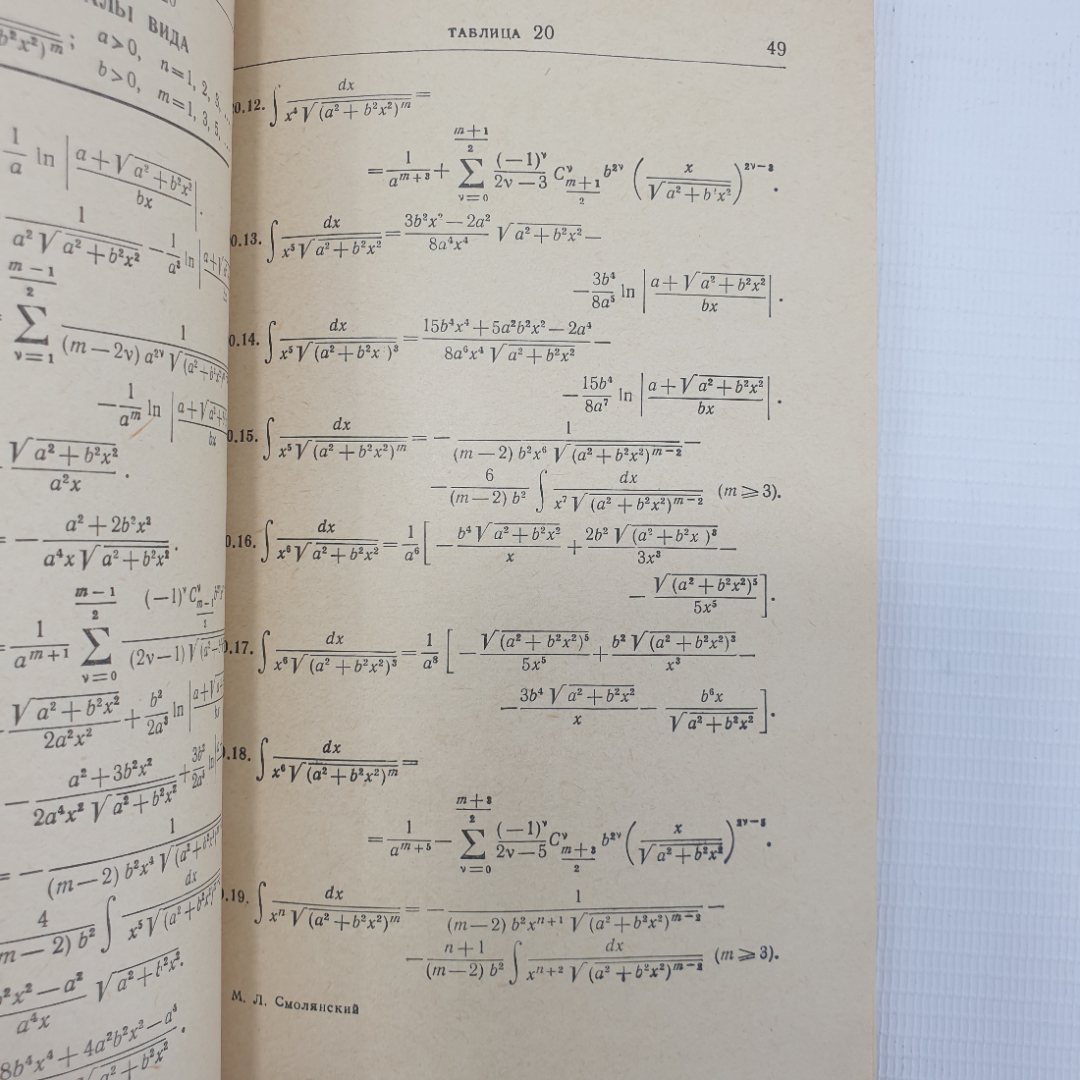 АЛЫ ВИДА
b²x²)ᵐ; a>0, n=1, 2, 3, ...
b>0, m=1, 3, 5, ...
1/a ln |(a+√(a²+b²x²))/(bx)|.
1/(a²√(a²+b²x²)) − 1/a³ ln
(m−1)/2 ∑ ν=1 1/((m−2ν) a^(2ν) √(a²+b²x²
−1/aᵐ ln
√(a²+b²x²)/(a²x).
= −(a²+2b²x²)/(a⁴x√(a²+b²x²)).
= 1/a^(m+1) ∑_(ν=0)^((m−1)/2) (−1)^ν C^ν_((m−1)/2) /((2ν−1)√
√(a²+b²x²)/(2a²x²) + b²/(2a³) ln
−(a²+3b²x²)/(2a⁴x²√(a²+b²x²)) + 3b²/(2a⁵) ln
= −1/((m−2) b²x⁴√(a²+b²x²
4/((m−2) b²) ∫ dx/(x⁵√(a²+b²x²
b²x²−a²/(a⁴x) √(a²+b²x²).
8b⁴x⁴+4a²b²x²−a⁴/ √(a²+b²x²).
ТАБЛИЦА 20
49
0.12. ∫ dx/(x⁴√((a²+b²x²)ᵐ)) =
= 1/a^(m+3) + ∑_(ν=0)^((m+1)/2) (−1)^ν/(2ν−3) C^ν_((m+1)/2) b^(2ν) (x/√(a²+b²x²))^(2ν−3).
0.13. ∫ dx/(x⁵√(a²+b²x²)) = (3b²x²−2a²)/(8a⁴x⁴) √(a²+b²x²) −
− 3b⁴/(8a⁵) ln |(a+√(a²+b²x²))/(bx)|.
0.14. ∫ dx/(x⁵√((a²+b²x )³)) = (15b⁴x⁴+5a²b²x²−2a⁴)/(8a⁶x⁴√(a²+b²x²)) −
− 15b⁴/(8a⁷) ln |(a+√(a²+b²x²))/(bx)|.
0.15. ∫ dx/(x⁵√((a²+b²x²)ᵐ)) = − 1/((m−2) b²x⁶√((a²+b²x²)^(m−2))) −
− 6/((m−2) b²) ∫ dx/(x⁷√((a²+b²x²)^(m−2))) (m⩾3).
0.16. ∫ dx/(x⁶√(a²+b²x²)) = 1/a⁶ [− b⁴√(a²+b²x²)/x + 2b²√((a²+b²x )³)/(3x³) −
− √((a²+b²x²)⁵)/(5x⁵)].
0.17. ∫ dx/(x⁶√((a²+b²x²)³)) = 1/a⁸ [− √((a²+b²x²)⁵)/(5x⁵) + b²√((a²+b²x²)³)/x³ −
− 3b⁴√(a²+b²x²)/x − b⁶x/√(a²+b²x²)].
0.18. ∫ dx/(x⁶√((a²+b²x²)ᵐ)) =
= 1/a^(m+5) − ∑_(ν=0)^((m+3)/2) (−1)^ν/(2ν−5) C^ν_((m+3)/2) b^(2ν) (x/√(a²+b²x²))^(2ν−5).
0.19. ∫ dx/(xⁿ√((a²+b²x²)ᵐ)) = − 1/((m−2) b²x^(n+1)√((a²+b²x²)^(m−2))) −
− (n+1)/((m−2) b²) ∫ dx/(x^(n+2)√((a²+b²x²)^(m−2))) (m⩾3).
М. Л. Смолянский